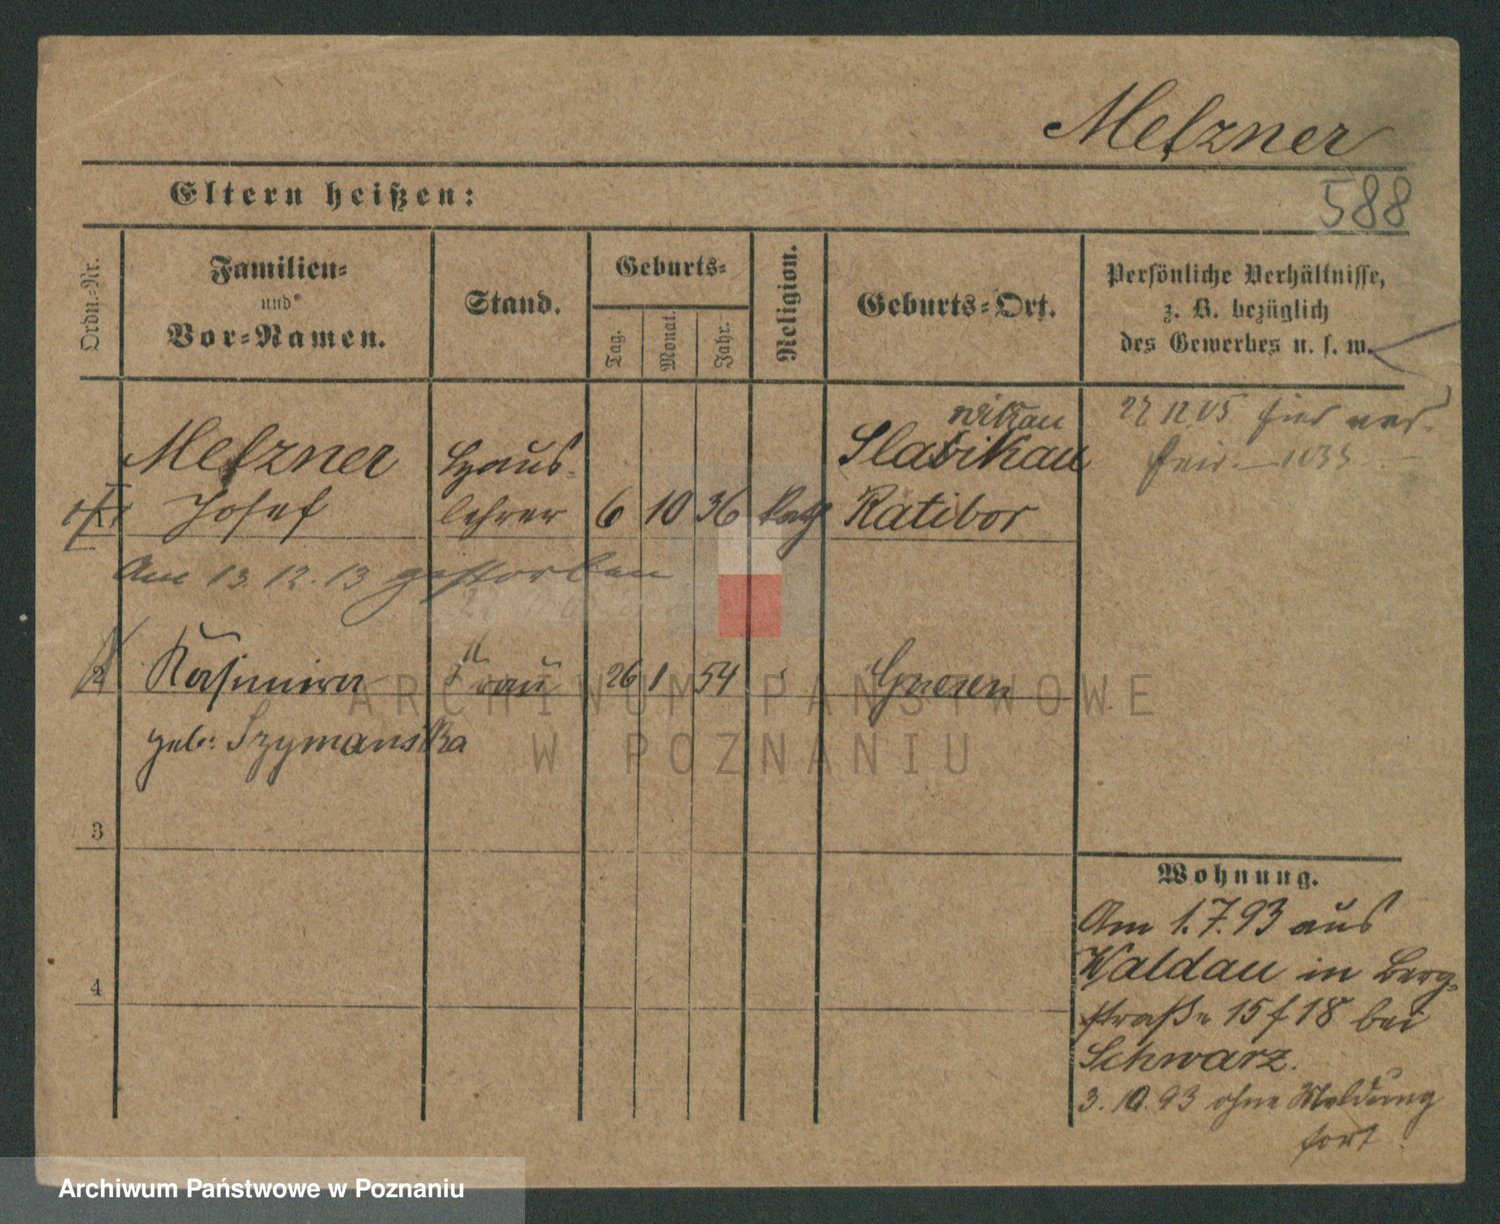 Metzner
588
Eltern heißen:
Ordn.-Nr.
Familien-
und
Vor-Namen.
Stand.
Geburts-
Tag.
Monat.
Jahr.
Religion.
Geburts-Ort.
Persönliche Verhältnisse,
z. B. bezüglich
des Gewerbes u. s. w.
Metzner Haus- Slavikau
Josef lehrer 6 10 36 kath Ratibor
22 12 05 hier
Am 13.12.13 gestorben
2 Kasimira Frau 26 1 54 " Gnesen
geb: Szymanska
3
4
Wohnung.
Am 1.7.93 aus
Waldau in Berg-
straße 15 f 18 bei
Schwarz.
3.10.93 ohne Meldung
fort.
ARCHIWUM PAŃSTWOWE
W POZNANIU
Archiwum Państwowe w Poznaniu